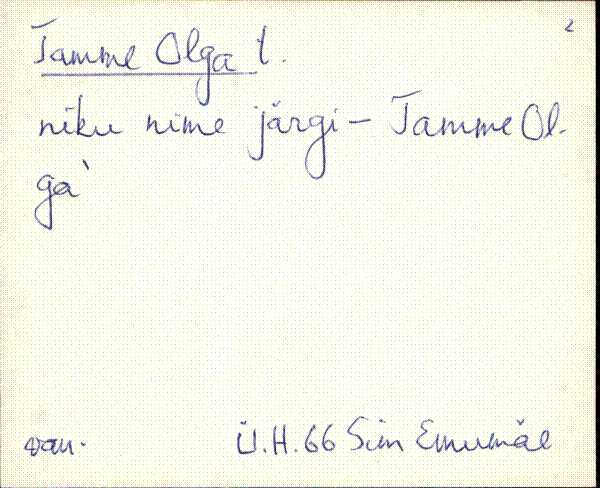 2
Tamme Olga t.
niku nime järgi – Tamme Ol-
ga`
van.
Ü.H. 66 Sim Emumäe